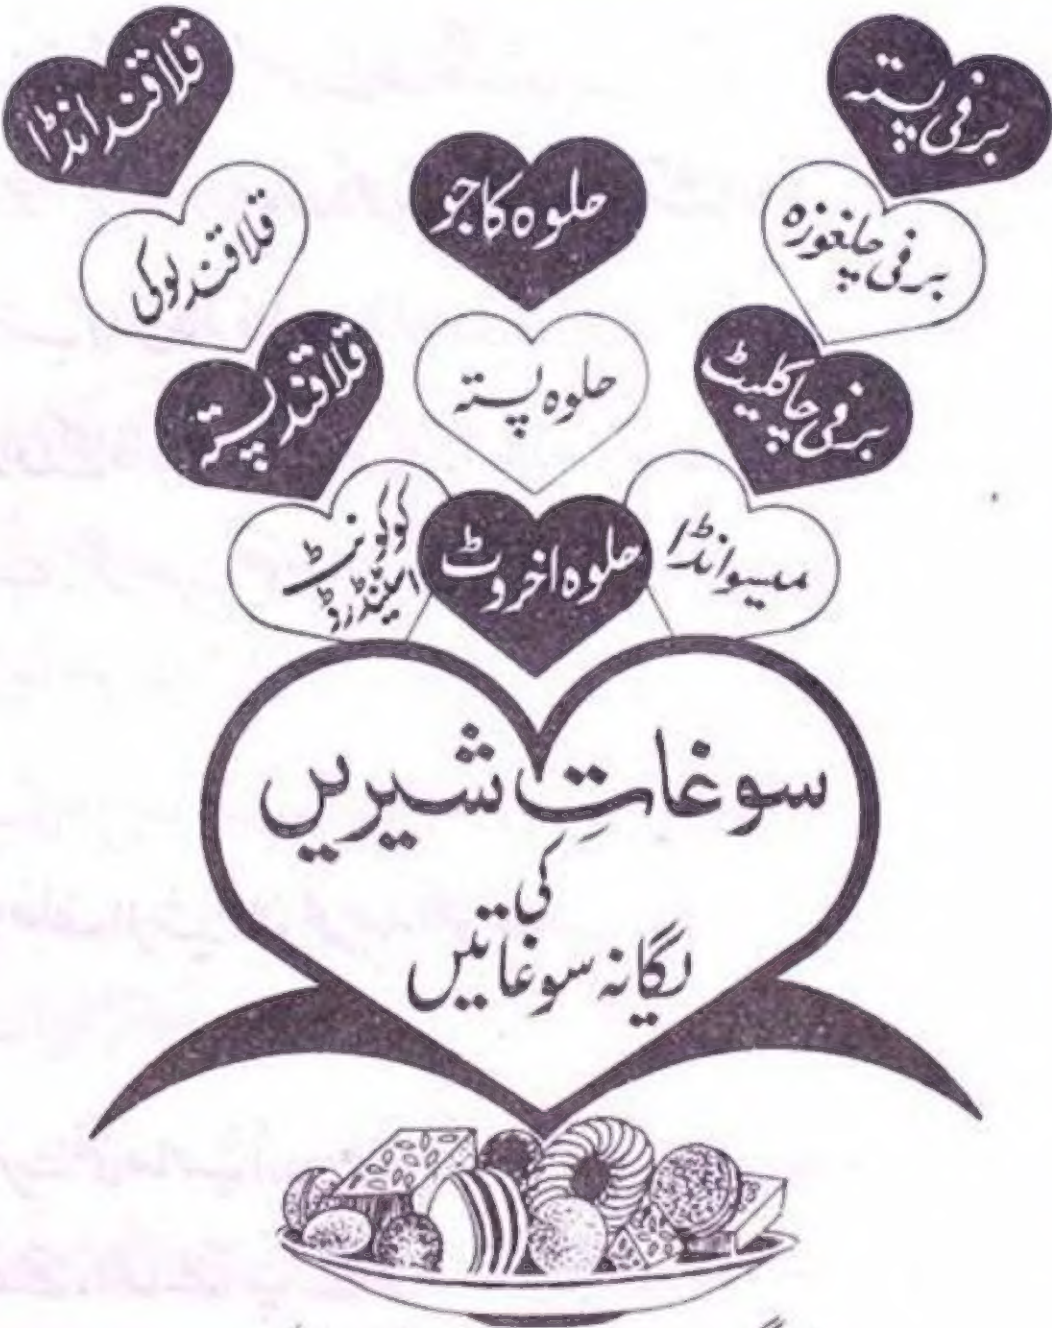 برفی پستہ
برفی چلغوزہ
برفی چاکلیٹ
میسو انڈا
حلوہ کاجو
حلوہ پستہ
حلوہ اخروٹ
قلاقند انڈا
قلاقند لوکی
قلاقند پستہ
کوکونٹ
اسٹینڈرڈ
سوغاتِ شیریں
کی
یگانہ سوغاتیں